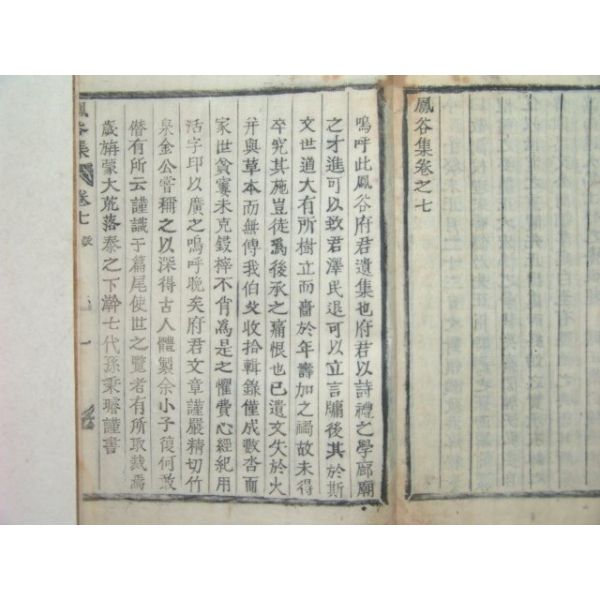 鳳谷集卷之七
嗚呼此鳳谷府君遺集也府君以詩禮之學廊廟
之才進可以致君澤民退可以立言牖後其於斯
文世道大有所樹立而嗇於年壽加之禍故未得
卒究其施豈徒爲後承之痛恨也已遺文失於火
幷與草本而無傳我伯父收拾輯錄僅成數沓而
家世貧窶未克鋟梓不肖爲是之懼費心經紀用
活字印以廣之嗚呼晚矣府君文章謹嚴精切竹
泉金公嘗稱之以深得古人體製余小子復何敢
僭有所云謹識于篇尾使世之覽者有所取裁焉
歲旃蒙大荒落泰之下澣七代孫秉璿謹書
鳳谷集 卷七 跋 一